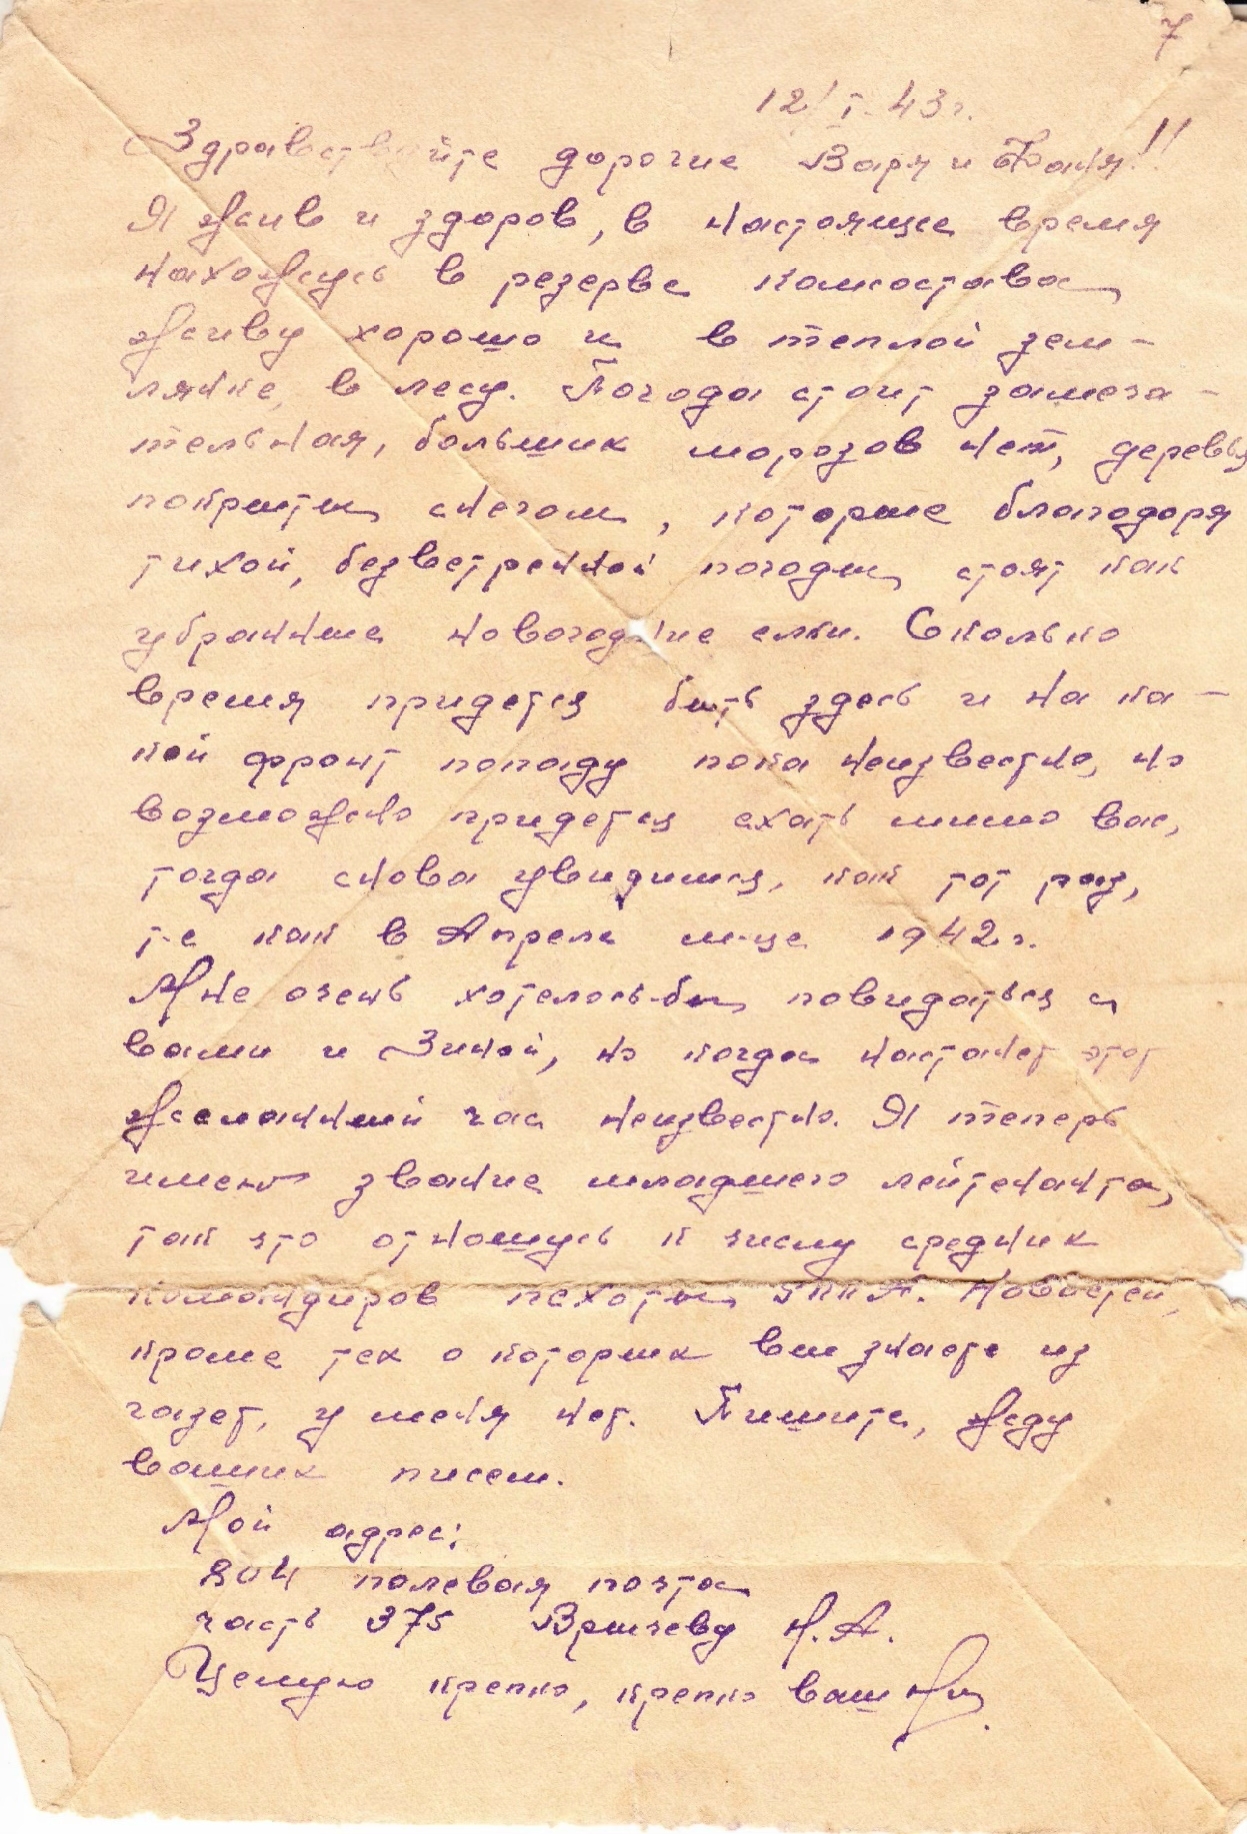 7
12/I-43г.
Здравствуйте дорогие Варя и Ваня!!
Я жив и здоров, в настояще время
нахожусь в резерве комсостава
живу хорошо и в теплой зем-
лянке, в лесу. Погода стоит замеча-
тельная, больших морозов нет, деревья
покрыты снегом, которые благодоря
тихой, безветренной погоды стоят как
убранные новогодние елки. Сколько
время придется быть здесь и на ка-
кой фронт попаду пока неизвестно, но
возможно придется ехать мимо вас,
тогда снова увидимся, как тот раз,
т-е как в Апреле м-це 1942 г.
Мне очень хотелось-бы повидаться с
вами и Зиной, но когда настанет этот
желанный час неизвестно. Я теперь
имею звание младшего лейтенанта,
так что отношусь к числу средних
командиров пехоты РККА. Новостей,
кроме тех о которых вы знаете из
газет, у меня нет. Пишите, жду
ваших писем.
Мой адрес:
804 полевая почта
часть 375 Н.А.
Целую крепко, крепко ваш